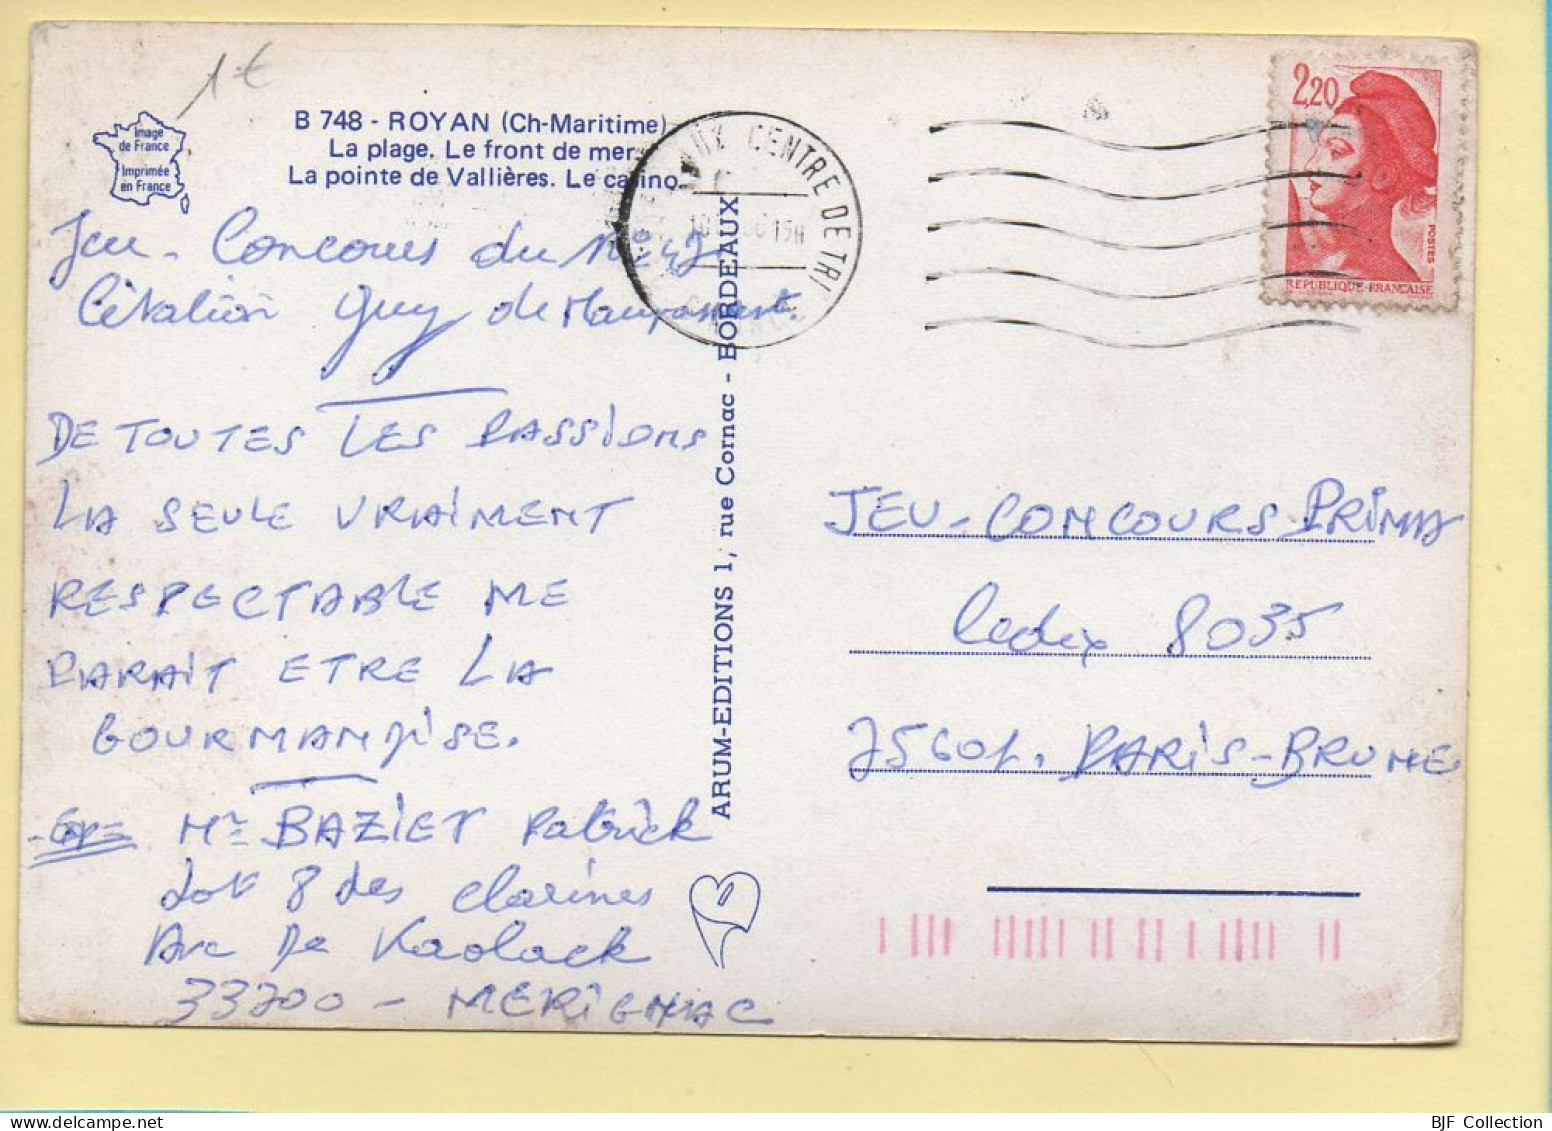 1€
Image
de France
Imprimée
en France
B 748 - ROYAN (Ch-Maritime)
La plage. Le front de mer.
La pointe de Vallières. Le casino.
Jeu-Concours du N° 42
Citation Guy de Maupassant.
DE TOUTES LES PASSIONS
LA SEULE VRAIMENT
RESPECTABLE ME
PARAIT ETRE LA
GOURMANDISE.
-Exp=
Mr BAZIET Patrick
Lot 8 des Clarines
Ave De Kaolack
33700 - MERIGNAC
ARUM-EDITIONS 1, rue Cornac - BORDEAUX
CENTRE DE TRI
15H
2,20
POSTES
REPUBLIQUE FRANCAISE
JEU-CONCOURS PRIMA
Cedex 8035
75601. PARIS-BRUNE
BJF Collection